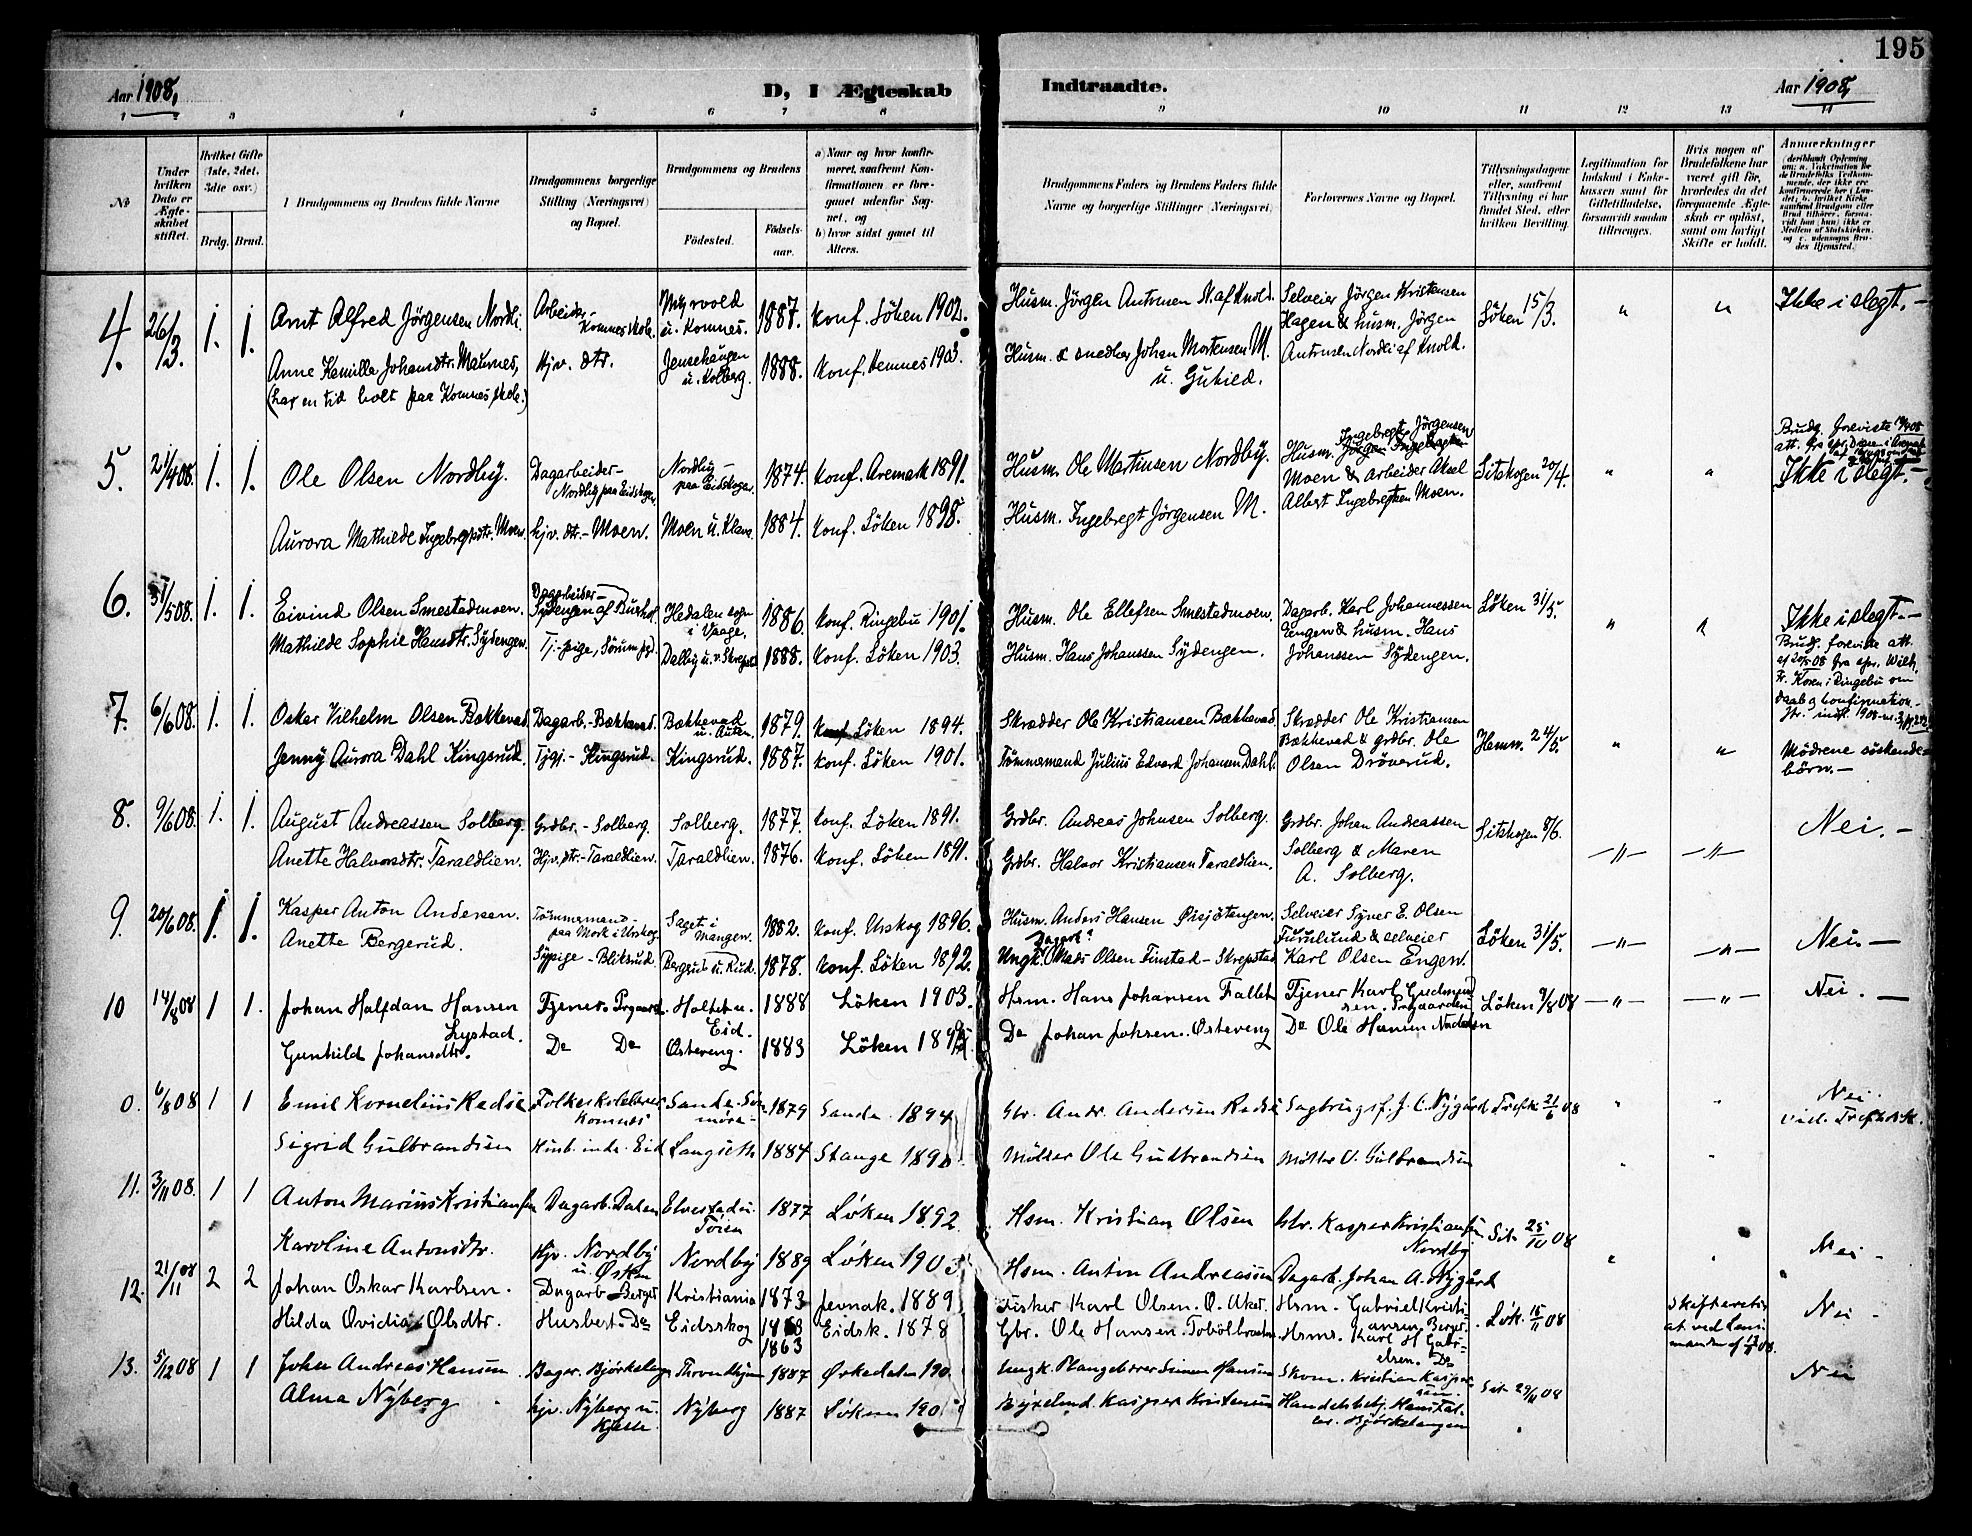 195
Aar 1908,
D, I Ægteskab Indtraadte.
Aar 1908,
1 2 3 4 5 6 7 8 9 10 11 12 13 14
No
Under hvilken Dato er Ægteskabet stiftet.
Hvilket Gifte (1ste, 2det, 3die osv.)
Brdg. Brud.
Brudgommens og Brudens fulde Navne
Brudgommens borgerlige Stilling (Næringsvei) og Bopæl.
Brudgommens og Brudens
Födested.
Födselsaar.
a) Naar og hvor konfirmeret, saafremt Konfirmationen er foregaaet udenfor Sognet, og
b) hvor sidst gaaet til Alters.
Brudgommens Faders og Brudens Faders fulde Navne og borgerlige Stillinger (Næringsvei)
Forlovernes Navne og Bopæl.
Tillysningsdagene eller, saafremt Tillysning ei har fundet Sted, efter hvilken Bevilling.
Legitimation for Indskud i Enkekassen samt for Giftetilladelse, forsaavidt saadan tiltrænges.
Hvis nogen af Brudefolkene har været gift før, hvorledes da det foregaaende Ægteskab er oplöst, samt om lovligt Skifte er holdt.
Anmærkninger
4. 26/3. 1. 1. Arnt Alfred Jörgensen Nordli. Arbeider, Komnes skole. Myrvold u. Komnes. 1887. Konf. Löken 1902. Husm. Jörgen Antonsen N. af Knold. Selveier Jörgen Kristensen Hagen & husm. Jörgen Antonsen Nordli af Knold. Löken 15/3. " " Ikke i slegt. –
Anne Kamilla Johansdtr. Maurnes, (har en tid holt paa Komnes skole.) Hjv. dtr. Jensehaugen u. Kolberg. 1888. Konf. Hemnes 1903. Husm. & snedker Johan Mortensen M. u. Guhild.
5. 21/4 08. 1. 1. Ole Olsen Nordby. Dagarbeider – Nordby paa Eidskogen. Nordby – paa Eidskogen. 1874. Konf. Aremark 1891. Husm. Ole Martinsen Nordby. Husm. Ingebregt Jörgensen Moen & arbeider Aksel Albert Ingebregtsen Moen. Sitskogen 20/4. " " Ikke i slegt. –
Aurora Mathilde Ingebregtsdtr. Moen. Hjv. dtr. – Moen. Moen u. Klave. 1884. Konf. Löken 1898. Husm. Ingebregt Jörgensen M.
6. 31/5 08. 1. 1. Eivind Olsen Smestadmoen. Dagarbeider – Sydengen af Burhol. Hedalen sogn i Vaage. 1886. Konf. Ringebu 1901. Husm. Ole Ellefsen Smestadmoen. Dagarb. Karl Johannessen Engen & husm. Hans Johanssen Sydengen. Löken 31/5. " " Ikke i slegt. –
Mathilde Sophie Hansdtr. Sydengen. Tj.-pige, Sörum pgd. Dalby u. v. Skrepstad 1888. Konf. Löken 1903. Husm. Hans Johanssen Sydengen.
Brudg. foreviste att. af 20/5 08 fra spr. Wilh. Fr. Koren i Ringebu om daab & konfirmation.
7. 6/6 08. 1. 1. Oskar Vilhelm Olsen Bækkevad. Dagarb. – Bækkevad. Bækkevad u. Auten. 1879. Konf. Löken 1894. Skrædder Ole Kristiansen Bækkevad. Skrædder Ole Kristiansen Bækkevad & grdbr. Ole Olsen Dröverud. Hemn. 24/5. " " Mödrene söskendebörn. –
Jenny Aurora Dahl Kingsrud. Tjgj. – Kingsrud. Kingsrud. 1887. Konf. Löken 1901. Tömmermand Julius Edvard Johansen Dahl.
8. 9/6 08. 1. 1. August Andreassen Solberg. Grdbr. – Solberg. Solberg. 1877. Konf. Löken 1891. Grdbr. Andreas Johnsen Solberg. Grdbr. Johan Andreassen Solberg & Maren A. Solberg. Sitskogen 8/6. –"– –"– Nei. –
Anette Halvorsdtr. Taraldlien. Hjv. dtr. – Taraldlien. Taraldlien. 1876. Konf. Löken 1891. Grdbr. Halvor Kristiansen Taraldlien.
9. 20/6 08. 1. 1. Kasper Anton Andersen. Tömmermand – paa Mork i Urskog. Saget i Mangen. 1882. Konf. Urskog 1896. Husm. Anders Hansen Öisjötangen. Selveier Syver E. Olsen Furulund & selveier Karl Olsen Engen. Löken 31/5. –"– –"– Nei. –
Anette Bergerud. Sypige – Bliksrud. Bergrud u. Rud. 1878. Konf. Löken 1892. Ungk. Mads Olsen Finstad – Skrepstad
10 14/8 08 1 1. Johan Halfdan Hansen Lystad. Tjener. Prgaard Holtet u. Eid. 1888 Löken 1903. Hsm. Hans Johansen Fallet Tjener Karl Gudmundsen. Prgaarden Löken 9/8 08 –"– –"– Nei. –
Gunhild Johansdtr. Do Do Östereng. 1883 Löken Do Johan Johsen. Östereng Do Ole Hansen
0. 6/8 08 1 1 Emil Kornelius Rødsæ Folkeskolelærer Komnes Sande. Søndmøre 1879 Sande 1894 Gbr. Andr. Andersen Rødsæ Sagbrugsf. J. C. Nygård Trefk. 21/6 08 " " Nei. vid. Trefk. kk.
Sigrid Gulbrandsen Husb. inde. Eid Langseth 1884 Stange Möller Ole Gudbrandsen Möller O. Gulbrandsen
11. 3/11 08. 1 1 Anton Marius Kristiansen Dagarb. Dalen Elvestad u. Töien 1877 Löken 1892 Hsm. Kristian Olsen Gbr. Kasper Kristiansen Nordby Sit. 25/10 08
Karoline Antonsdtr. Hjv. Nordby u. Ösken Nordby 1889 Löken 1903 Hsm. Anton Andreassen Dagarb. Johan A. Nygård " " Nei –
12. 21/11 08 2 2 Johan Oskar Karlsen. Dagarb. Berger Kristiania 1873 Jevnak. 1889 Fisker Karl Olsen. Ö. Aker. Hsm. Gabriel Kristiansen Berger. Løk. 15/11 08 Skifteretsat. ved Lensmanden af Nei –
Hilda Ovidia Olsdtr. Husbest. Do Eidsskog 1863 Eidsk. 1878 Gbr. Ole Hansen. Hsms. Karl H Gabrielsen. Do
13. 5/12 08 1 1 Johan Andreas Hansen Bager. Björkelangen Throndhjem 1887 Örkedalen 190 Ungk. Hansen Skom. Kristian Kaspersen. Sit. 29/11 08 Nei
Alma Nyberg Hjv. Nyberg u. Kjelle Nyberg 1887 Löken 190 Kasper Kristensen Handelsbetj. Björkelangen